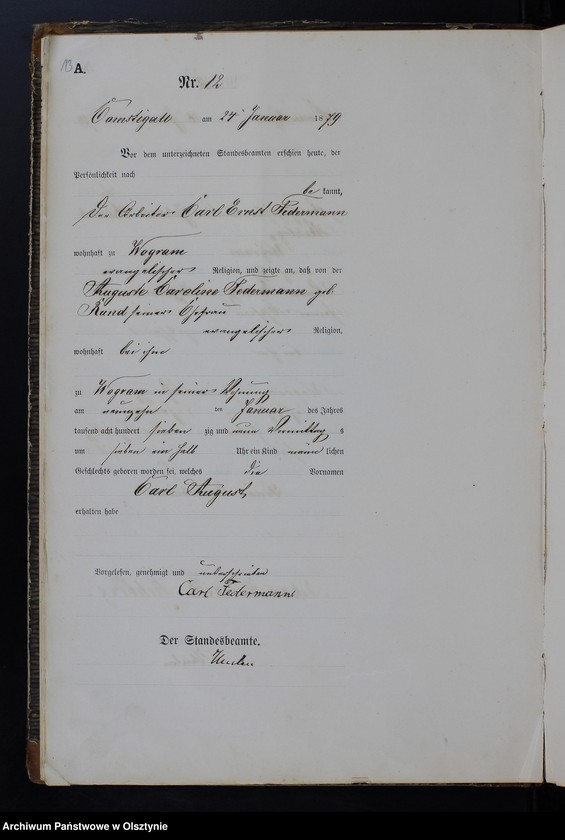 13 A.
Nr. 12
Camstigall am 24 Januar 1879
Vor dem unterzeichneten Standesbeamten erschien heute, der
Persönlichkeit nach
be kannt,
Der Arbeiter Carl Ernst Federmann
wohnhaft zu Wogram
evangelischer Religion, und zeigte an, daß von der
Auguste Caroline Federmann geb.
Rund seiner Ehefrau
evangelischer Religion,
wohnhaft bei ihm
zu Wogram in seiner Wohnung
am neunzehn ten Januar des Jahres
tausend acht hundert sieben zig und neun Vormittag s
um sieben ein halb Uhr ein Kind männ lichen
Geschlechts geboren worden sei, welches die Vornamen
Carl August
erhalten habe
Vorgelesen, genehmigt und unterschrieben
Carl Federmann
Der Standesbeamte.
Archiwum Państwowe w Olsztynie